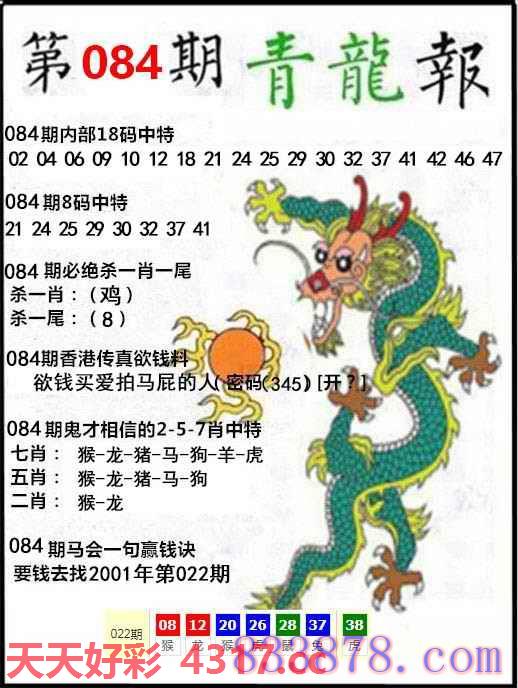 第084期青龍報
084期内部18码中特
02 04 06 09 10 12 18 21 24 25 29 30 32 37 41 42 46 47
084期8码中特
21 24 25 29 30 32 37 41
084期必绝杀一肖一尾
杀一肖：（鸡）
杀一尾：（8）
084期香港传真欲钱料
欲钱买爱拍马屁的人(密码(345)[开？]
084期鬼才相信的2-5-7肖中特
七肖： 猴-龙-猪-马-狗-羊-虎
五肖： 猴-龙-猪-马-狗
二肖： 猴-龙
084期马会一句赢钱诀
要钱去找2001年第022期
022期 08 12 20 26 28 37 38
猴 龙 猴 虎 鼠 兔 虎
天天好彩 4317.cc
838878.com